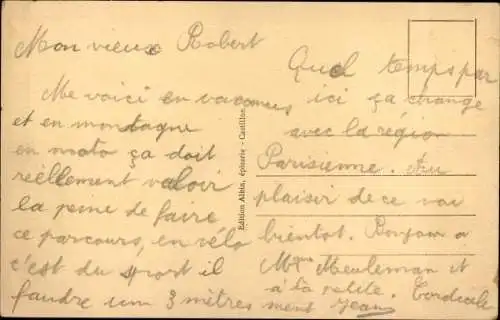 Mon vieux Robert
Me voici en vacances
et en montagne
en moto ça doit
réellement valoir
la peine de faire
ce parcours, en vélo
c'est du sport il
faudre um 3 mètres
Edition Albin, épicerie - Castillon
Quel temps par
ici ça change
avec la région
Parisienne. Au
plaisir de ce voir
bientot. Bonjour a
Mme Meuleman et
a la petite. Cordiale
ment Jean